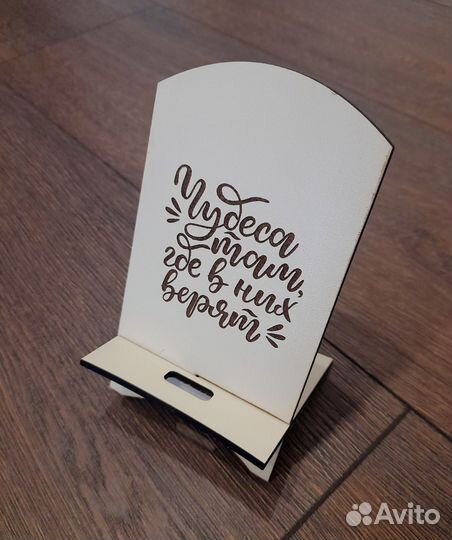 Чудеса
там,
где в них
верят
Avito